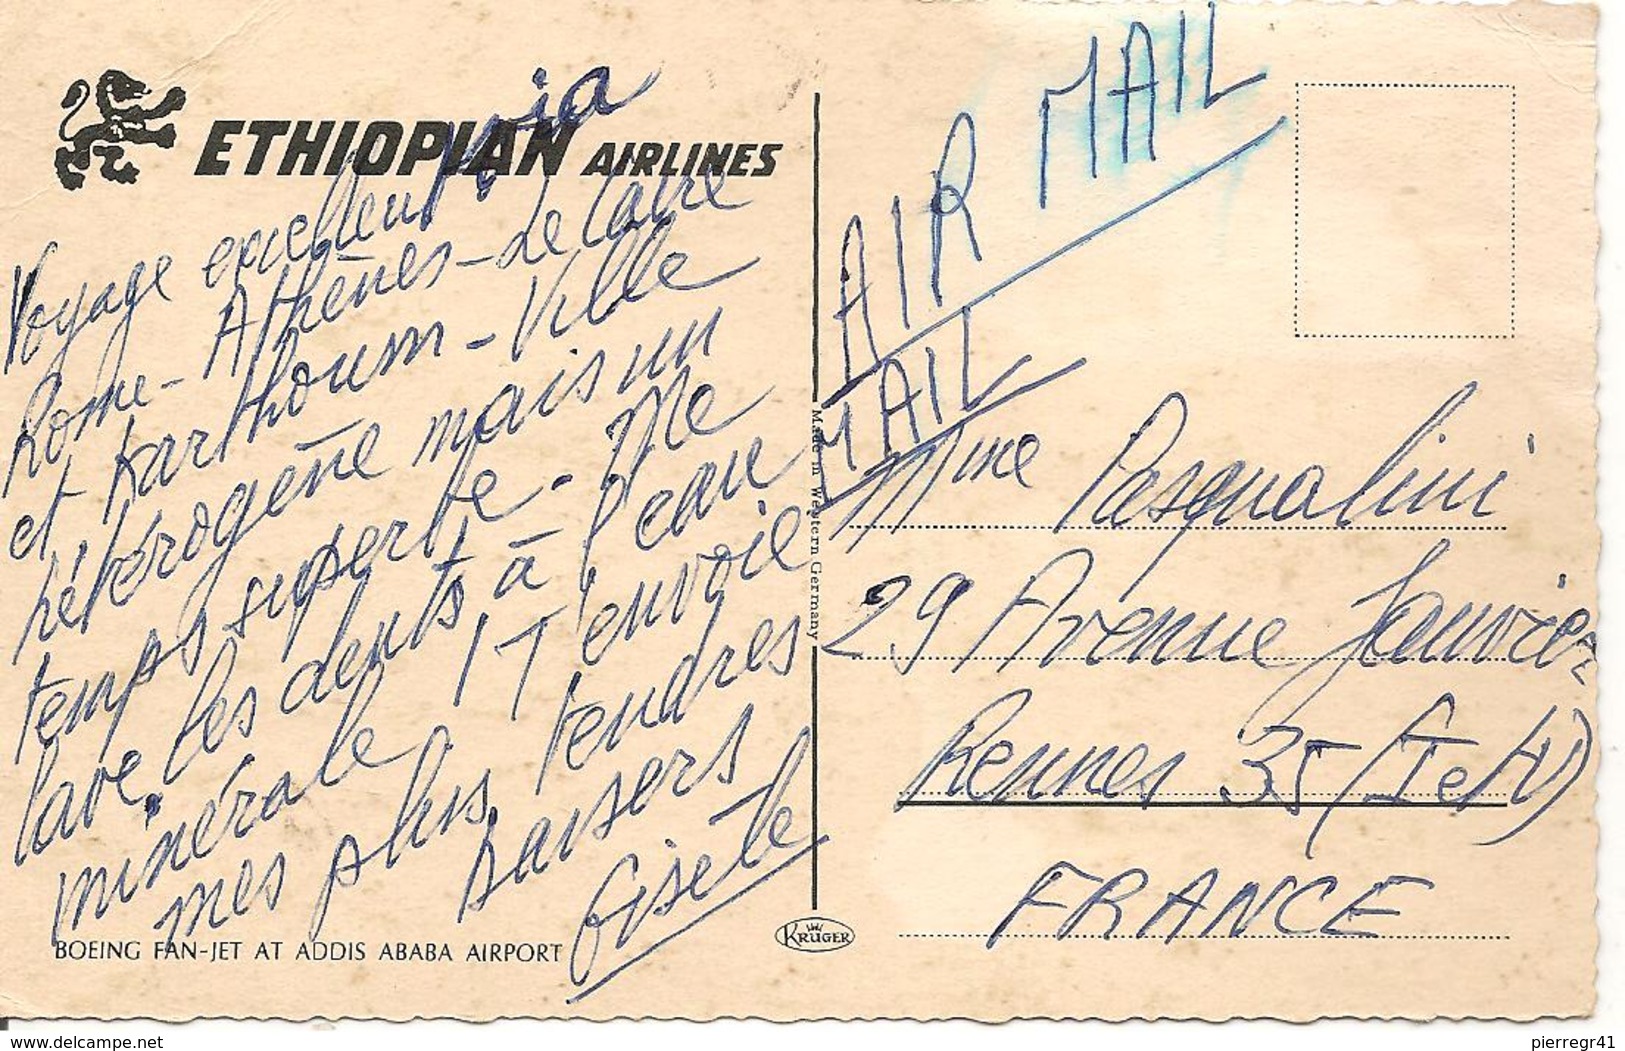 ETHIOPIAN AIRLINES
Voyage excellent via
Rome - Athènes - Le Caire
et Karthoum - Ville
hétérogène mais un
temps superbe - Me
lave les dents à l'eau
minérale ! T'envoie
mes plus tendres
baisers
Gisèle
BOEING FAN-JET AT ADDIS ABABA AIRPORT
Made in Western Germany
KRÜGER
AIR MAIL
MAIL
Mme Pasqualini
29 Avenue Janvier
Rennes 35 (I et V)
FRANCE
delcampe.net
pierregr41